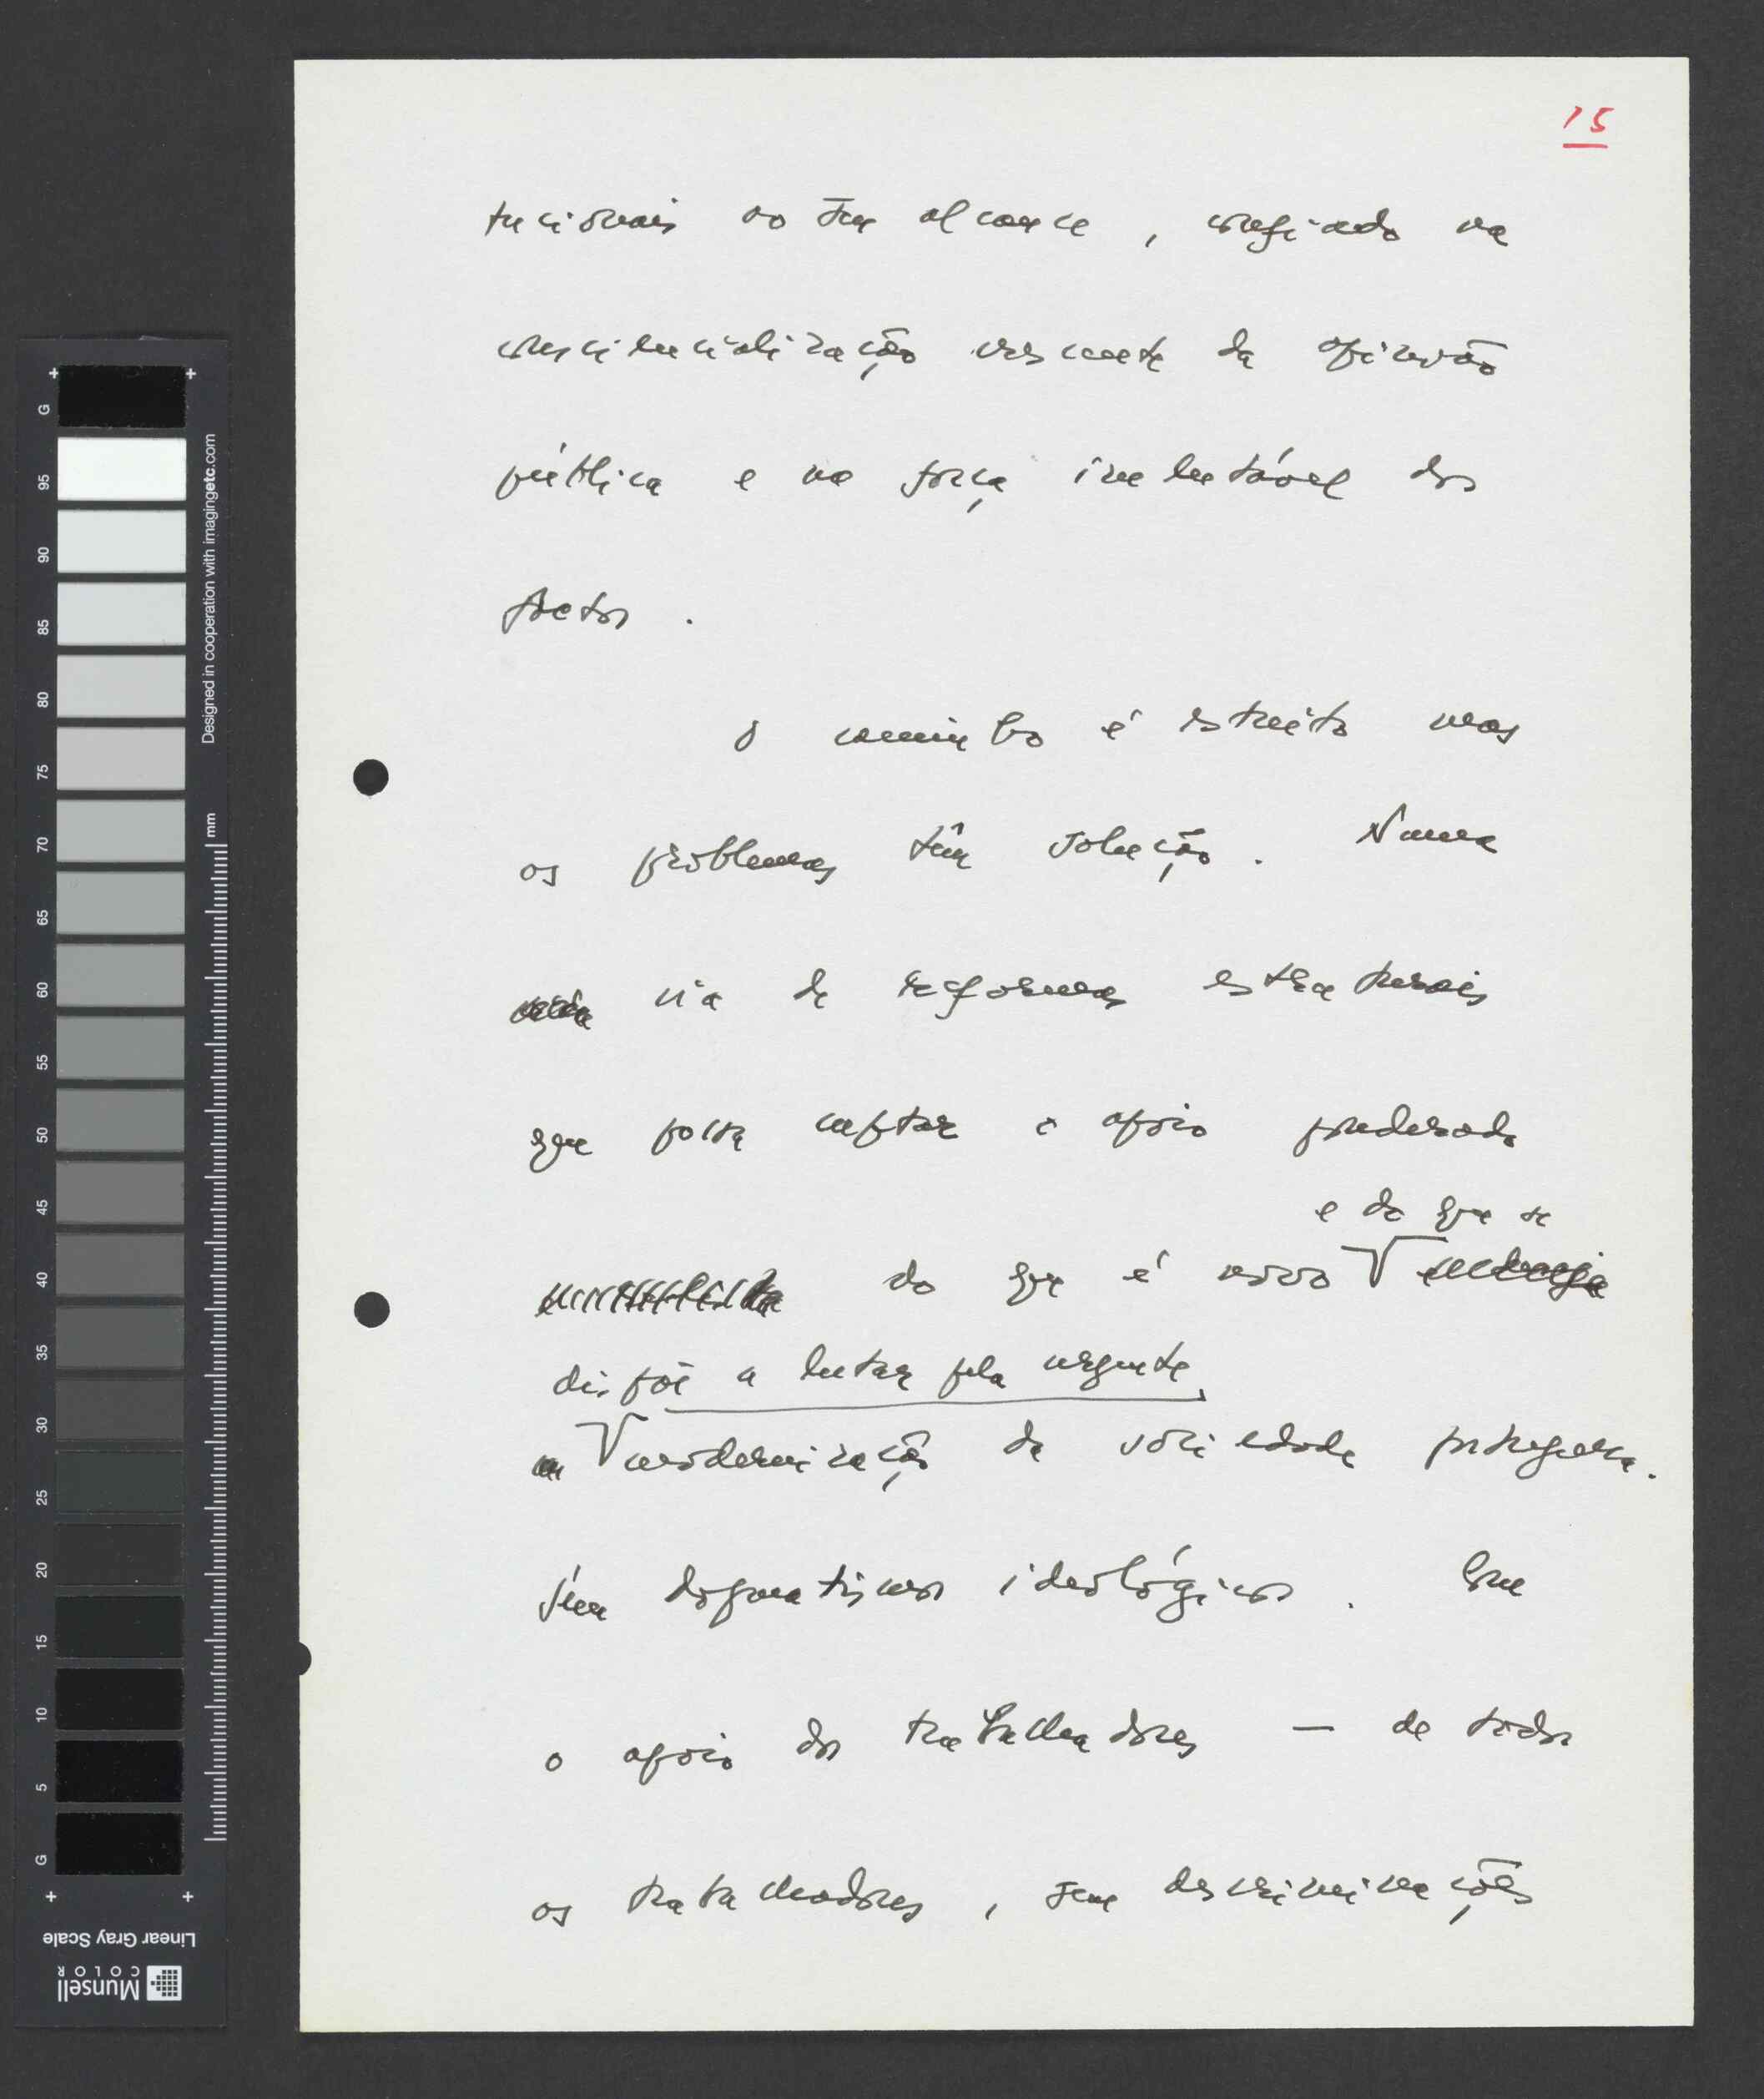 15
tucionais ao seu alcance, confiado na
consciencialização crescente da opinião
pública e na força inelutável dos
factos.
O caminho é estreito mas
os problemas têm solução. Numa
via de reformas estruturais
que possa captar o apoio ponderado
e do que se
do que é novo
dispõe a lutar pela urgente
modernização da sociedade portuguesa.
Sem dogmatismos ideológicos. Com
o apoio dos trabalhadores — de todos
os trabalhadores, sem descriminações
G
95
90
85
80
75
70
65
60
55
50
45
40
35
30
25
20
15
10
5
G
Designed in cooperation with imagingetc.com
mm
Linear Gray Scale
Munsell
COLOR